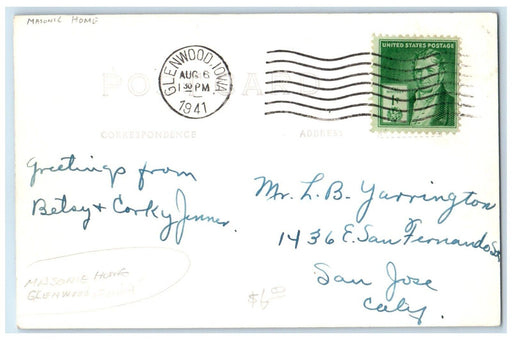 MASONIC HOME
GLENWOOD, IOWA
AUG 6
1 30 PM
1941
UNITED STATES POSTAGE
POST CARD
CORRESPONDENCE
ADDRESS
Greetings from
Betsy + Corky Jenner.
Mr. L. B. Yarrington
1436 E. San Fernando St
San Jose
Calif.
MASONIC HOME
GLENWOOD